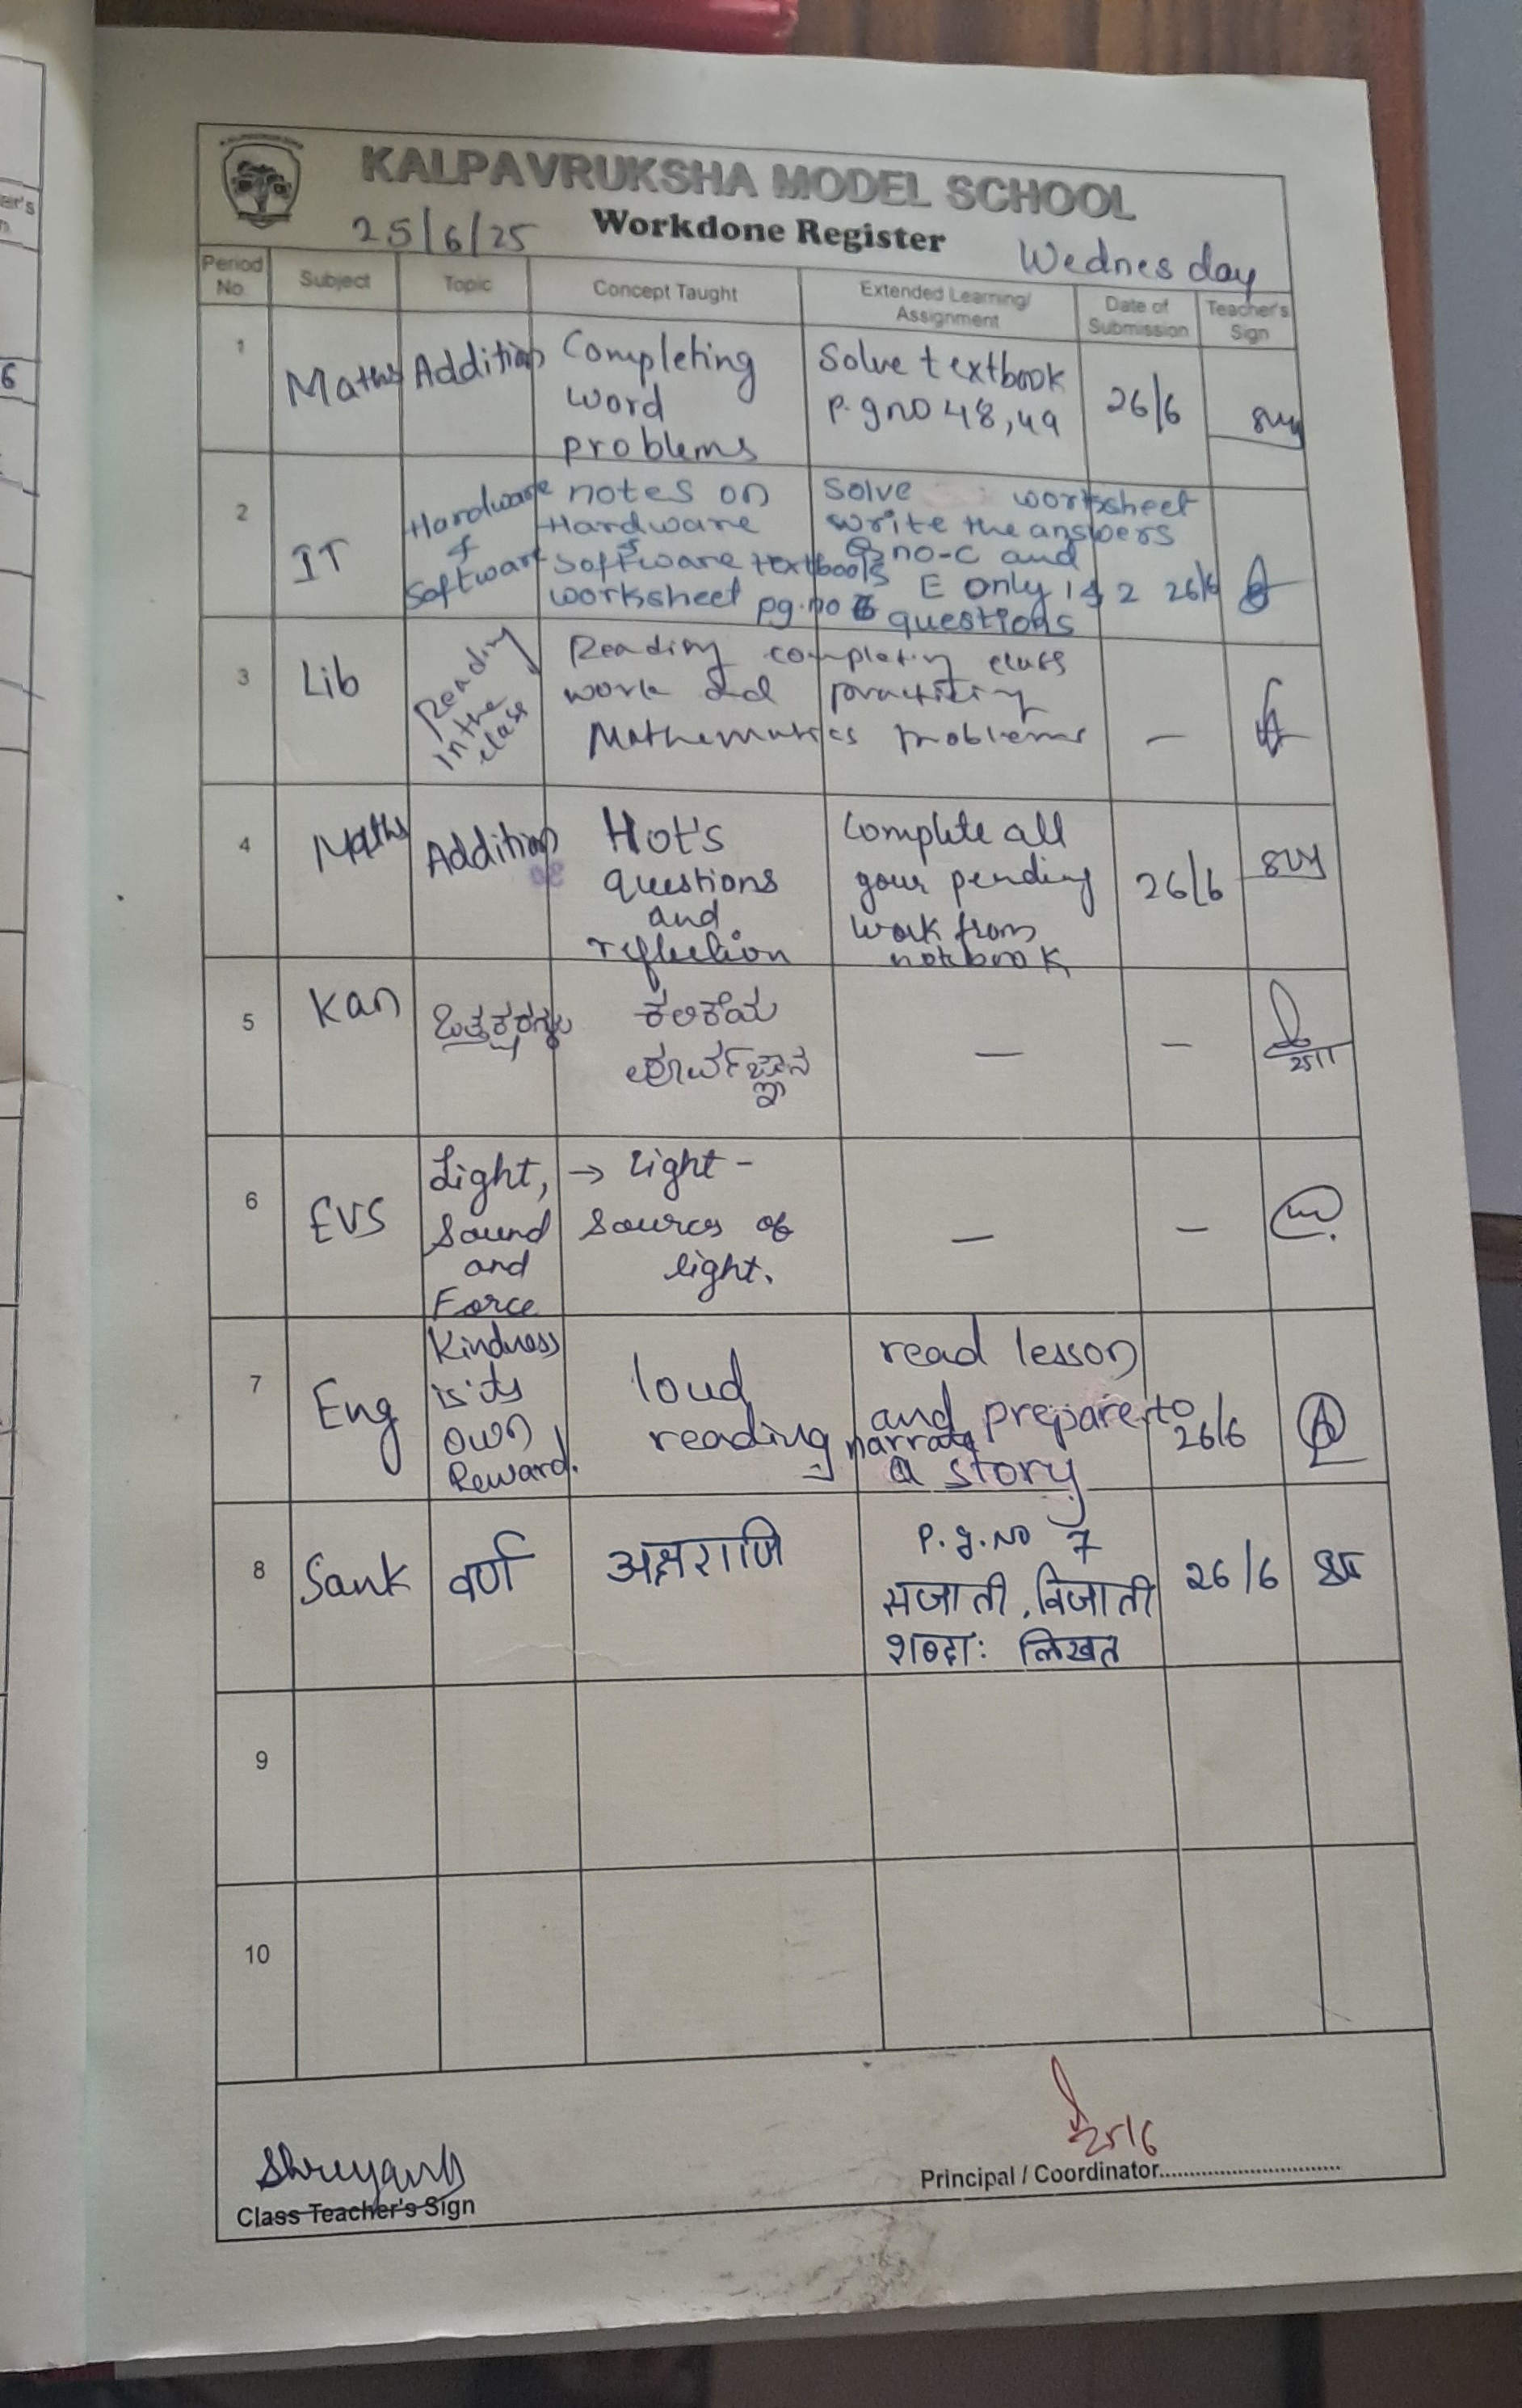 KALPAVRUKSHA MODEL SCHOOL
25/6/25 Workdone Register Wednesday
Period No. Subject Topic Concept Taught Extended Learning/ Assignment Date of Submission Teacher's Sign
1 Maths Addition Completing word problems Solve textbook p.gno 48,49 26/6
2 IT Hardware & Software notes on Hardware & Software textbook worksheet pg.no 6 Solve worksheet write the answers Q no-C and E only 1 & 2 questions 26/6
3 Lib Reading in the class Reading completing class work and practicing Mathematics problems —
4 Maths Addition Hot's questions and reflection Complete all your pending work from notbook 26/6
5 Kan ಒತ್ತಕ್ಷರಗಳು ಕಲಿಕೆಯ ಪೂರ್ವಜ್ಞಾನ — —
6 EVS Light, Sound and Force → Light - Sources of light. — —
7 Eng Kindness is its own Reward. loud reading read lesson and prepare to narrate a story 26/6
8 Sank वर्ण अक्षराणि P.g.No 7 सजाती, विजाती शब्दाः लिखत 26/6
9
10
25/6
Class Teacher's Sign Principal / Coordinator..............................